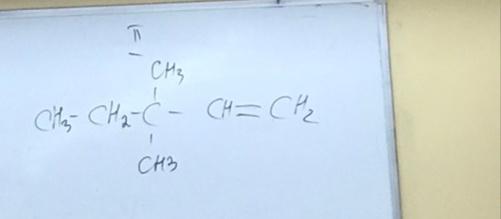 II
CH3
CH3-CH2-C-CH=CH2
CH3